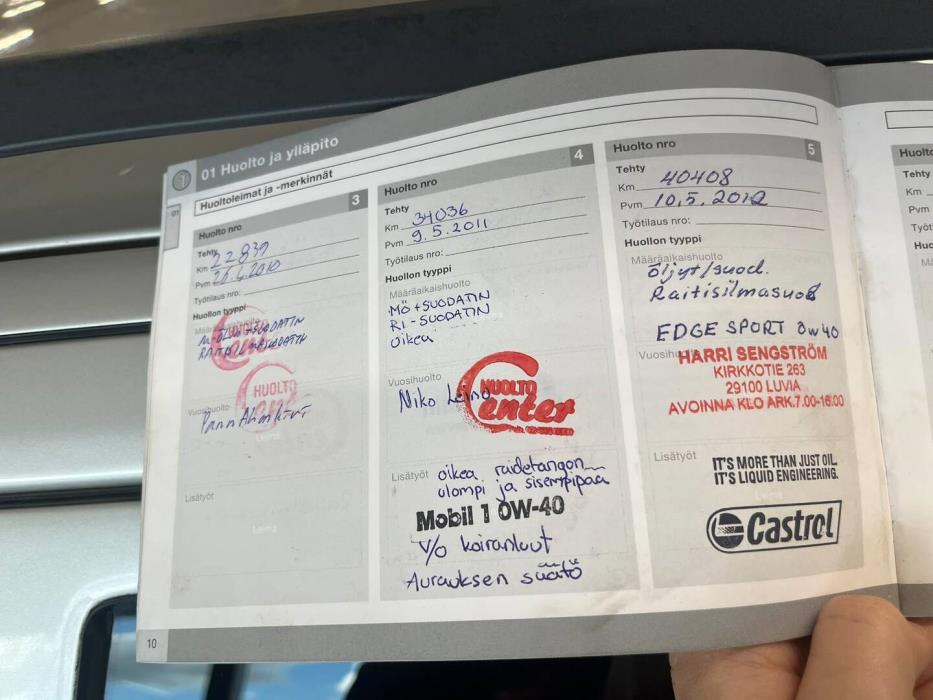 01 Huolto ja ylläpito
01
Huoltoleimat ja -merkinnät
3
Huolto nro
Tehty
Km 22839
Pvm 2010
Työtilaus nro:
Huollon tyyppi
M-ÖLJY+SUODATIN
RAITISILMASUODATIN
HUOLTO
Center
Vuosihuolto
Lisätyöt
4
Huolto nro
Tehty
Km 34036
Pvm 9.5.2011
Työtilaus nro:
Huollon tyyppi
Määräaikaishuolto
MÖ+SUODATIN
RI-SUODATIN
oikea
Vuosihuolto
Niko Leino
HUOLTO
Center
Lisätyöt
oikea raidetangon
ulompi ja sisempipää
Mobil 1 0W-40
V/O koiranluut
Aurauksen säätö
5
Huolto nro
Tehty
Km 40408
Pvm 10.5.2012
Työtilaus nro:
Huollon tyyppi
Määräaikaishuolto
öljyt/suod.
Raitisilmasuod
EDGE SPORT 0w40
HARRI SENGSTRÖM
KIRKKOTIE 263
29100 LUVIA
AVOINNA KLO ARK.7.00-16.00
Lisätyöt
IT'S MORE THAN JUST OIL.
IT'S LIQUID ENGINEERING.
Castrol
10
Huolto
Tehty
Km
Pvm
Työt
Huo